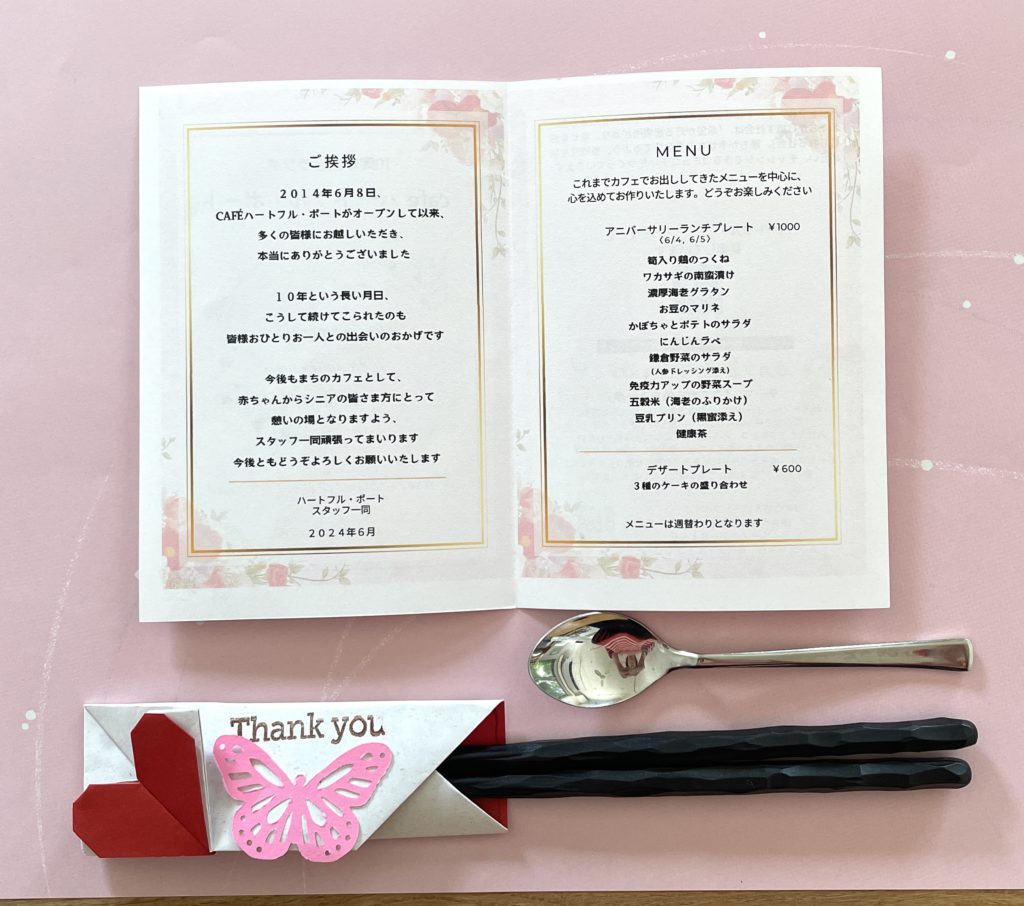 ご挨拶
2014年6月8日、
CAFÉハートフル・ポートがオープンして以来、
多くの皆様にお越しいただき、
本当にありがとうございました
10年という長い月日、
こうして続けてこられたのも
皆様おひとりお一人との出会いのおかげです
今後もまちのカフェとして、
赤ちゃんからシニアの皆さま方にとって
憩いの場となりますよう、
スタッフ一同頑張ってまいります
今後ともどうぞよろしくお願いいたします
ハートフル・ポート
スタッフ一同
2024年6月
MENU
これまでカフェでお出ししてきたメニューを中心に、
心を込めてお作りいたします。どうぞお楽しみください
アニバーサリーランチプレート ¥1000
〈6/4, 6/5〉
筍入り鶏のつくね
ワカサギの南蛮漬け
濃厚海老グラタン
お豆のマリネ
かぼちゃとポテトのサラダ
にんじんラペ
鎌倉野菜のサラダ
(人参ドレッシング添え)
免疫力アップの野菜スープ
五穀米(海老のふりかけ)
豆乳プリン(黒蜜添え)
健康茶
デザートプレート ¥600
3種のケーキの盛り合わせ
メニューは週替わりとなります
Thank you